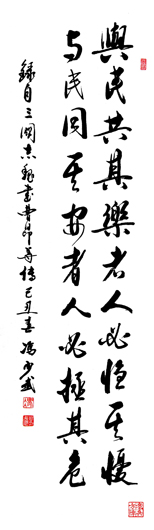 與民共其樂者人必憂其憂
与民同其安者人必拯其危
錄自三國志魏書曹冏等傳己丑春馮少武